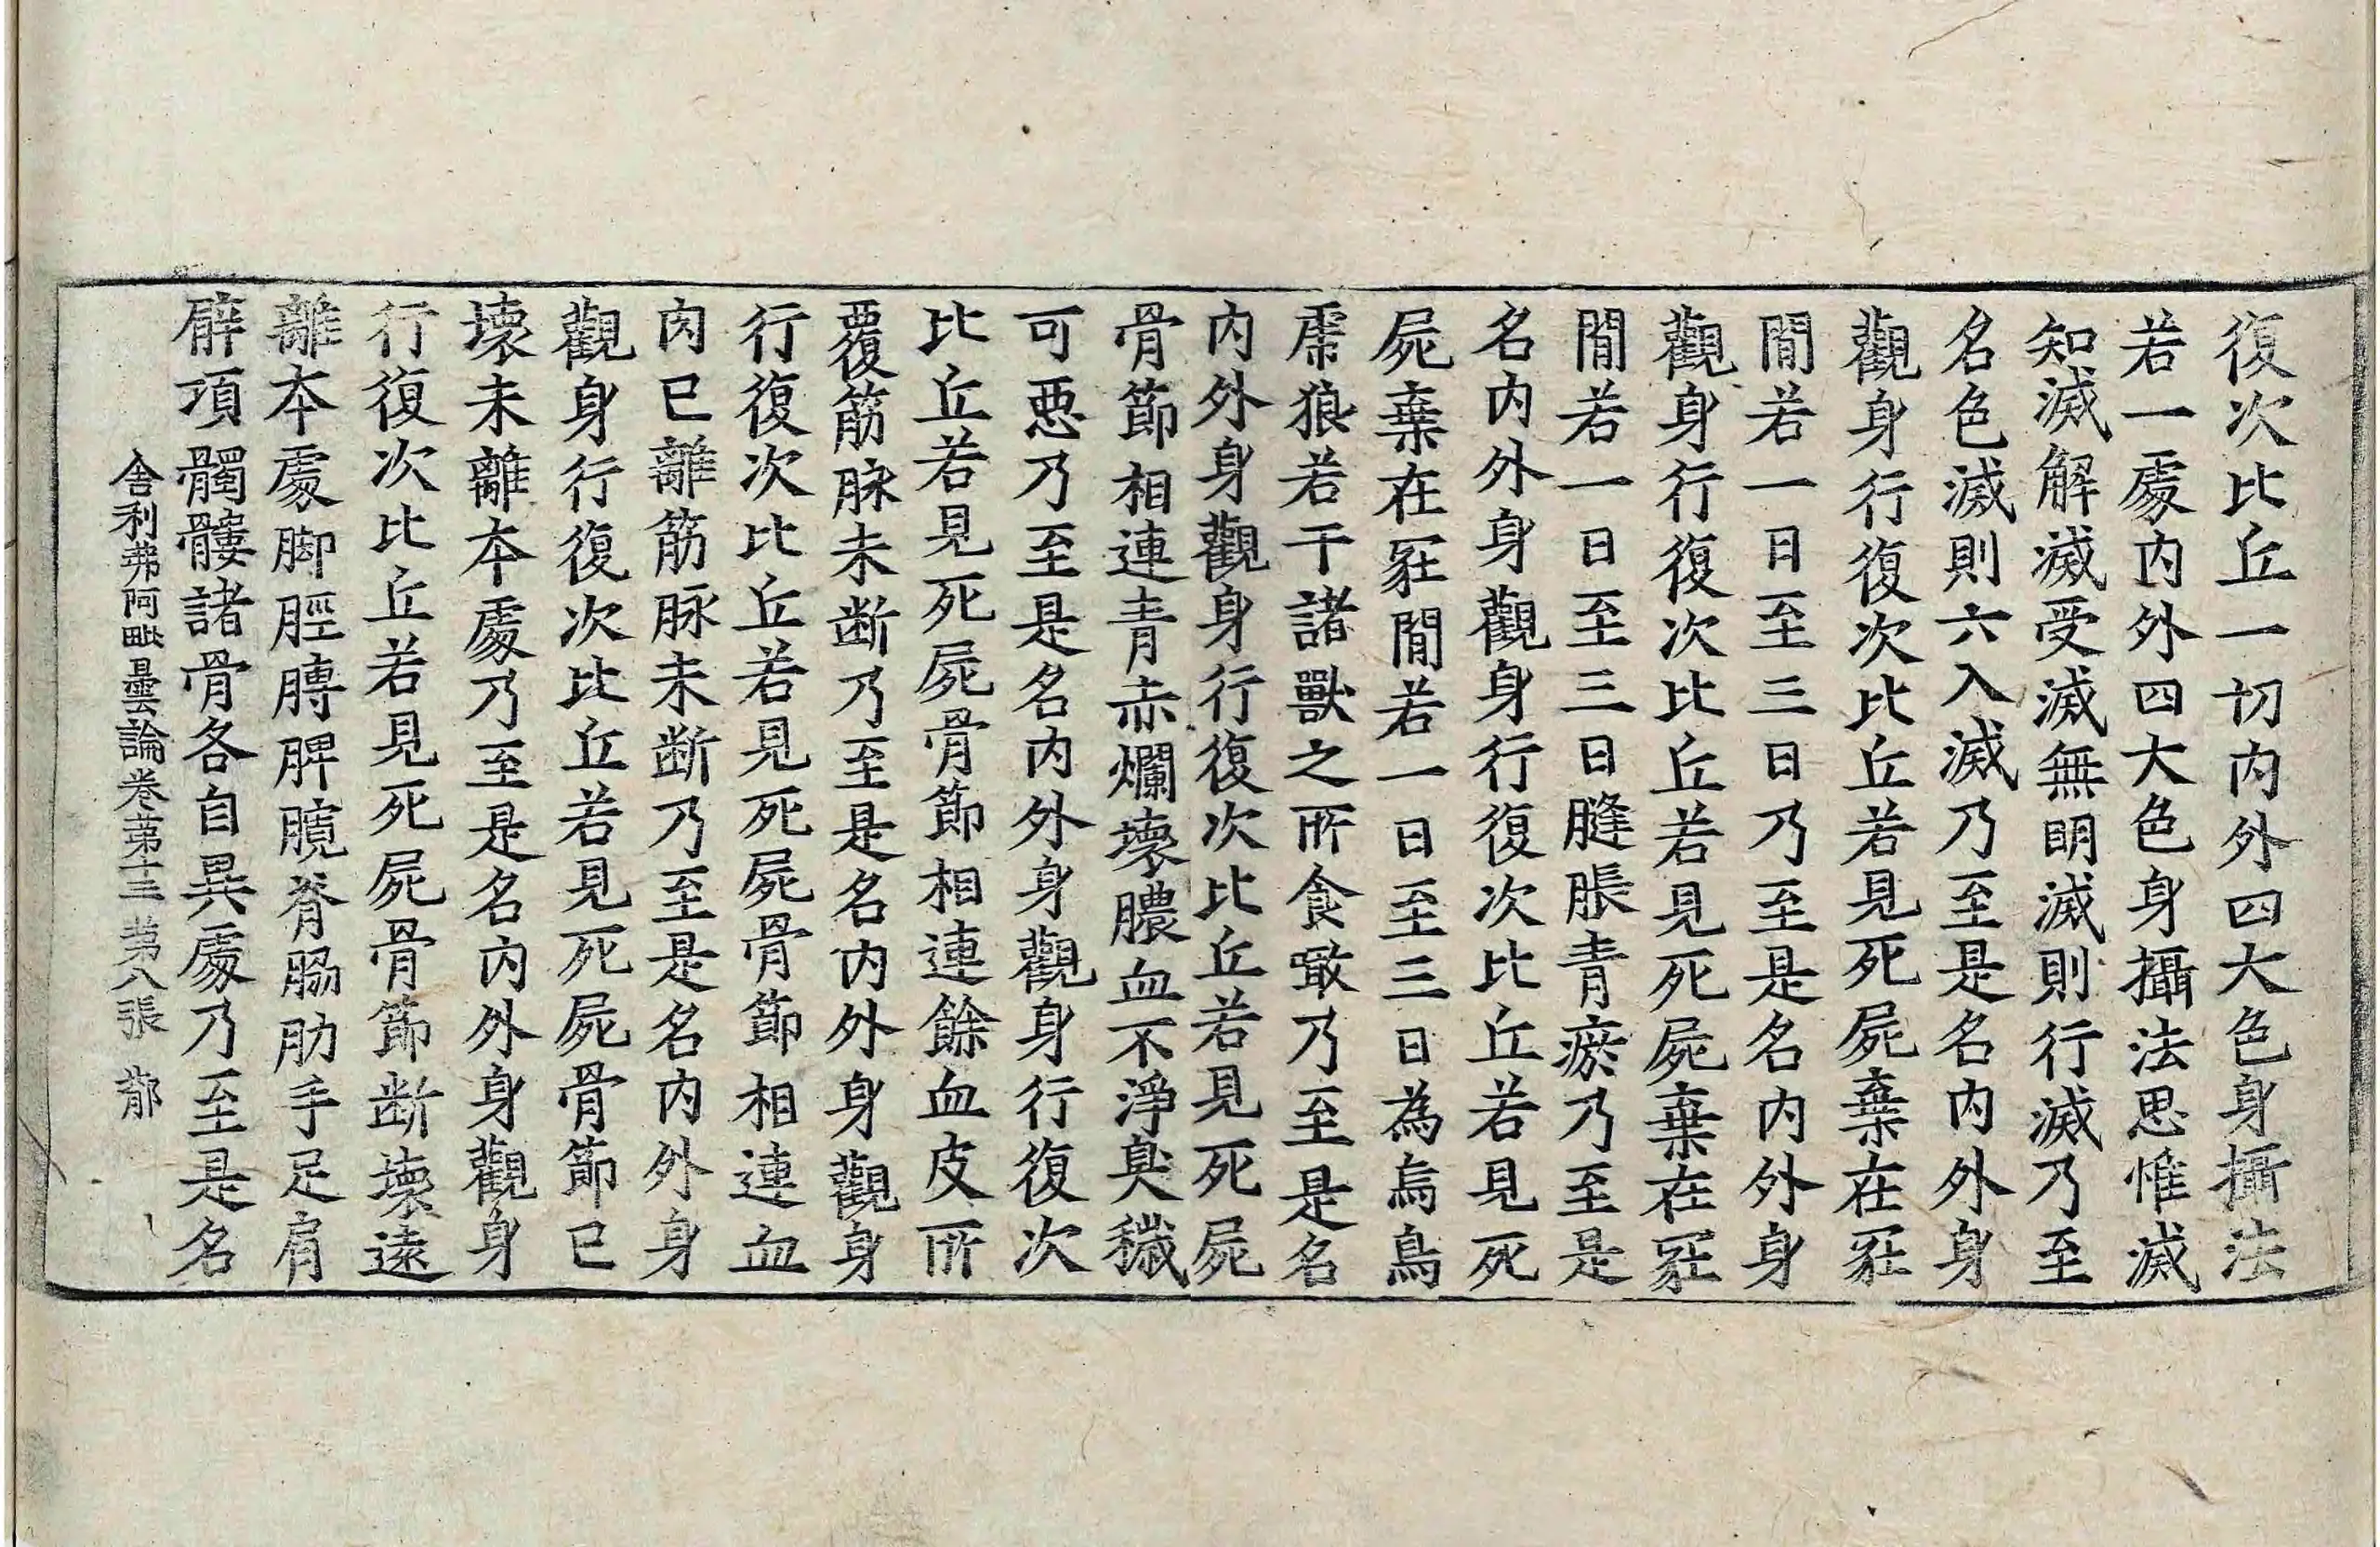 復次比丘一切内外四大色身攝法
若一處内外四大色身攝法思惟滅
知滅解滅受滅無明滅則行滅乃至
名色滅則六入滅乃至是名内外身
觀身行復次比丘若見死屍棄在冢
間若一日至三日乃至是名内外身
觀身行復次比丘若見死屍棄在冢
間若一日至三日膖脹青瘀乃至是
名内外身觀身行復次比丘若見死
屍棄在冢間若一日至三日為烏鳥
虎狼若干諸獸之所食噉乃至是名
内外身觀身行復次比丘若見死屍
骨節相連青赤爛壞膿血不淨臭穢
可惡乃至是名内外身觀身行復次
比丘若見死屍骨節相連餘血皮所
覆筋脉未断乃至是名内外身觀身
行復次比丘若見死屍骨節相連血
肉已離筋脉未断乃至是名内外身
觀身行復次比丘若見死屍骨節已
壞未離本處乃至是名内外身觀身
行復次比丘若見死屍骨節断壞遠
離本處脚脛膞髀臗脊脇肋手足肩
臂項髑髏諸骨各自異處乃至是名
舍利弗阿毗曇論卷第十三 第八張 郁